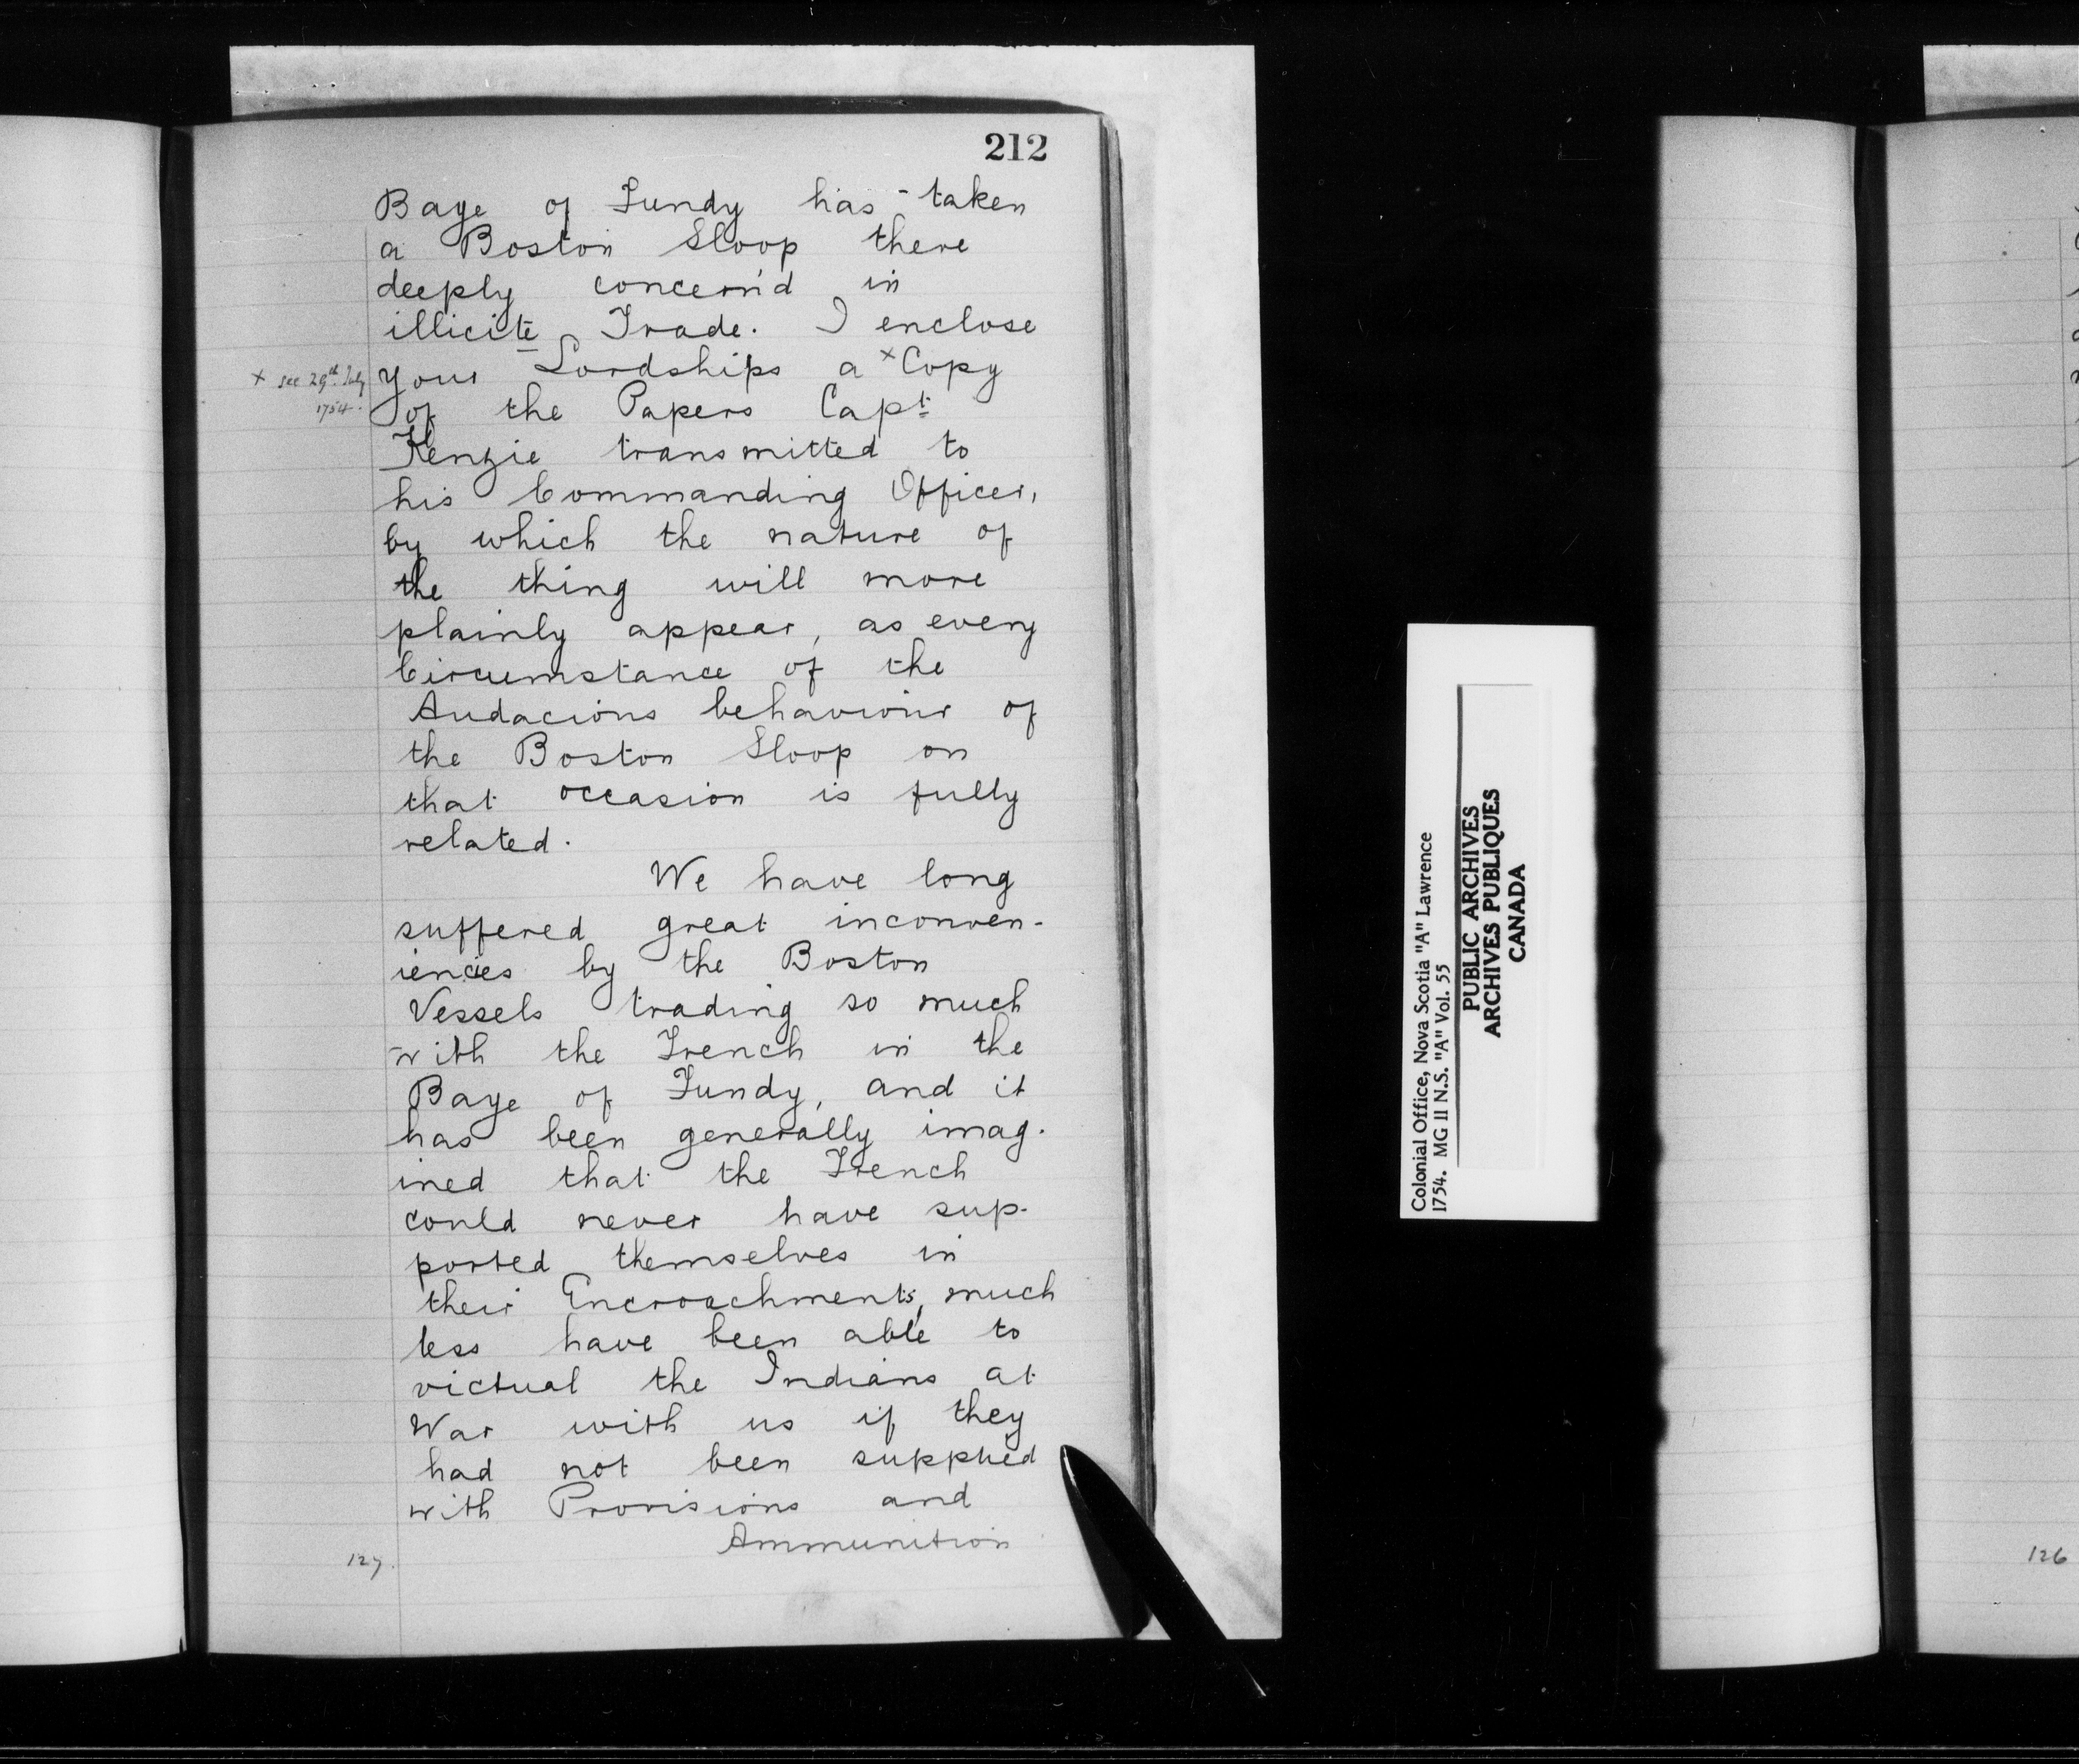 212
Baye of Fundy has taken
a Boston Sloop there
deeply concern'd in
illicite Trade. I enclose
your Lordships a ˣ Copy
x see 29th July
1754.
of the Papers Capt.
Kenzie transmitted to
his Commanding Officer,
by which the nature of
the thing will more
plainly appear, as every
Circumstance of the
Audacious behaviour of
the Boston Sloop on
that occasion is fully
related.
We have long
suffered great inconven-
iencies by the Boston
Vessels trading so much
with the French in the
Baye of Fundy, and it
has been generally imag-
ined that the French
could never have sup-
ported themselves in
their Encroachments, much
less have been able to
victual the Indians at
War with us if they
had not been supplied
with Provisions and
Ammunition
127.
Colonial Office, Nova Scotia "A" Lawrence
1754. MG II N.S. "A" Vol. 55
PUBLIC ARCHIVES
ARCHIVES PUBLIQUES
CANADA
126